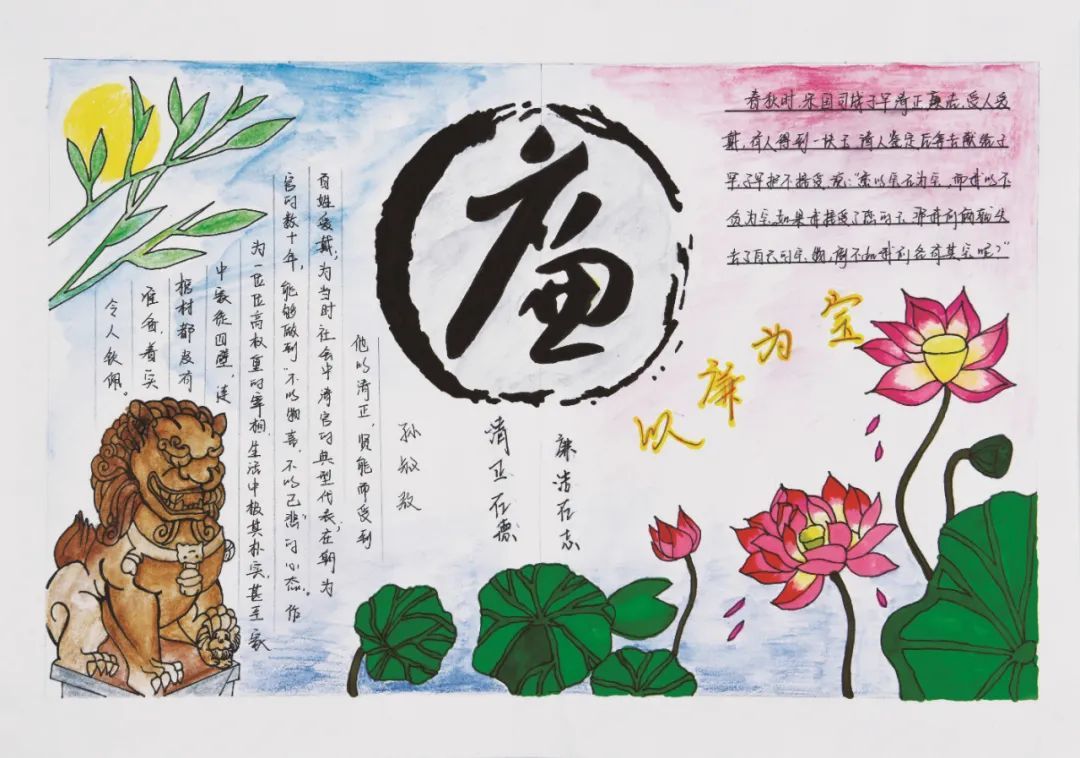 廉
春秋时,宋国司城子罕清正廉洁,受人爱
戴,有人得到一块玉,请人鉴定后拿去献给子
罕,子罕拒不接受,说:“您以宝石为宝,而我以不
贪为宝,如果我接受了您的玉,那我们俩就失
去了自己的宝物,倒不如我们各有其宝呢?”
以廉为宝
廉洁在志
清正在德
孙叔敖
他以清正,贤能而受到
百姓爱戴,为当时社会中清官的典型代表,在朝为
官的数十年,能够做到“不以物喜,不以己悲”的心态。作
为一位位高权重的宰相,生活中极其朴实,甚至家
中家徒四壁,连
棺材都没有
准备,着实
令人钦佩。